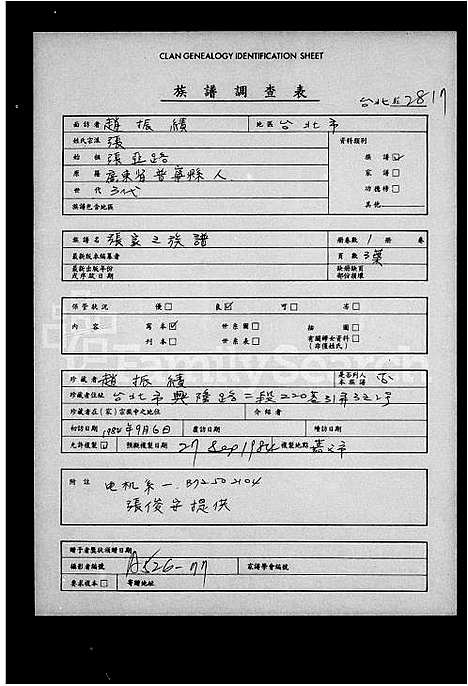 CLAN GENEALOGY IDENTIFICATION SHEET
族譜調查表
台北縣 2817
面訪者 趙振績 地區 台北市
姓氏宗派 張 資料類別
始祖 張亞路 族譜 ☑
原籍 廣東省普寧縣人 家譜 □
世代 3代 功德榜 □
族譜包含地區 其他
族譜名 張家之族譜 冊卷數 1 冊 卷
最新版本編纂者 頁數 3葉
最新出版年份或序跋日期 缺冊缺頁部份損壞
保管狀況 優 □ 良 ☑ 可 □ 劣 □
內容 寫本 ☑ 世系圖 □ 插圖 □
刊本 □ 世系表 □ 有關婦女資料 □ (非僅姓氏)
FamilySearch
珍藏者 趙振績 是否列入本族譜 否
珍藏者住址 台北市興隆路二段220巷31弄3之2號
珍藏者在(家)宗親中之地位 介紹者
初訪日期 1984年9月6日 覆訪日期 續訪日期
允許複製 ☑ 預擬複製日期 27 Sep 1984 複製地點
附註 电机系一. B72502104
張俊宇提供
贈予者獎狀頒贈日期
攝影者編號 A526-77 家譜學會編號
要求複本 □ 寄贈地址